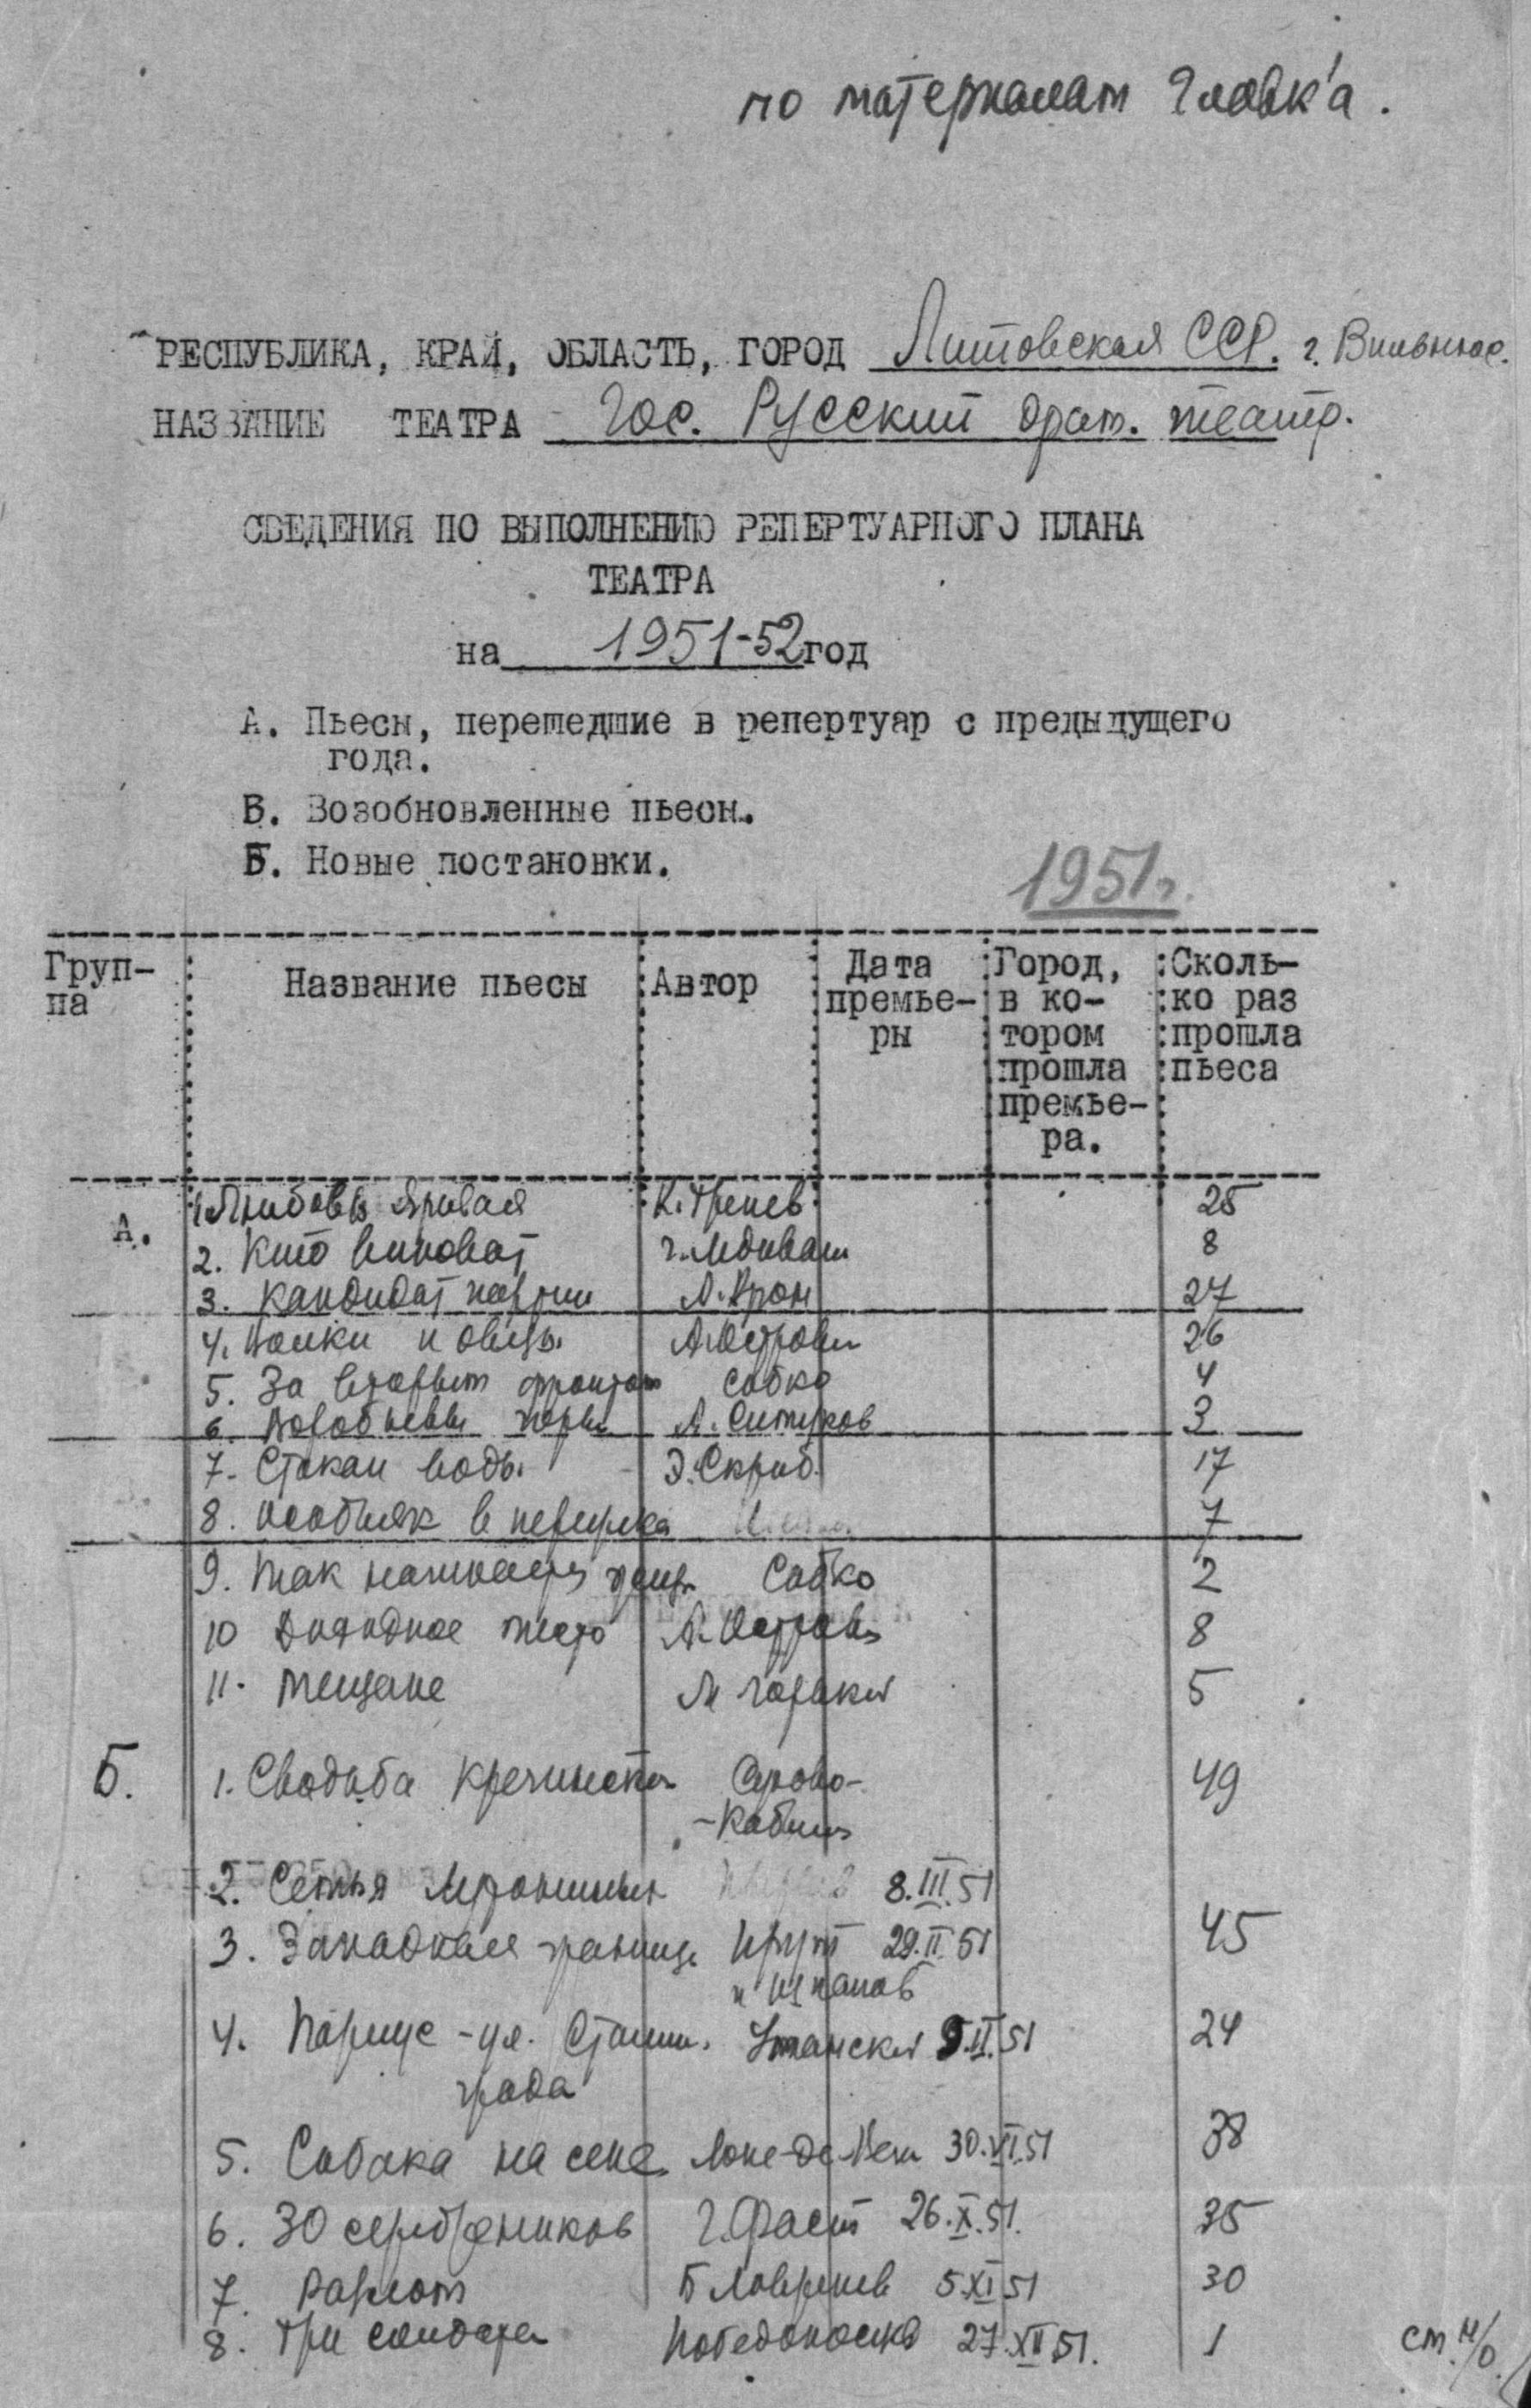 по материалам Главк'а.
РЕСПУБЛИКА, КРАЙ, ОБЛАСТЬ, ГОРОД Литовская ССР. г. Вильнюс.
НАЗВАНИЕ ТЕАТРА Гос. Русский драм. театр.
СВЕДЕНИЯ ПО ВЫПОЛНЕНИЮ РЕПЕРТУАРНОГО ПЛАНА
ТЕАТРА
на 1951-52 год
А. Пьесы, перешедшие в репертуар с предыдущего
года.
В. Возобновленные пьесы.
Б. Новые постановки.
1951г.
Груп-
па
Название пьесы
Автор
Дата
премье-
ры
Город,
в ко-
тором
прошла
премье-
ра.
Сколь-
ко раз
прошла
пьеса
А. 1. Любовь Яровая К. Тренев 25
2. Кто виноват Г. Мдивани 8
3. Кандидат партии А. Крон 27
4. Волки и овцы А. Островск 26
5. За вторым фронтом Собко 4
6. Воробьевы горы А. Симуков 3
7. Стакан воды Э. Скриб. 17
8. Особняк в переулке 7
9. Так начинается Собко 2
10 Доходное место А. Островск 8
11. Мещане М Горький 5
Б. 1. Свадьба Кречинского Сухово- 49
-Кобылин
2. Семья 8.III.51
3. Западная граница Крутт 29.II.51 45
и Шпанов
4. Париж - ул. Сталин- Уманский 9.II.51 24
града
5. Собака на сене Лопе-де-Вега 30.VI.51 38
6. 30 сребреников Г. Фаст 26.X.51. 35
7. Разлом Б Лавренев 5 XI 51 30
8. Три солдата Победоносцев 27.XII 51. 1
см. н/о